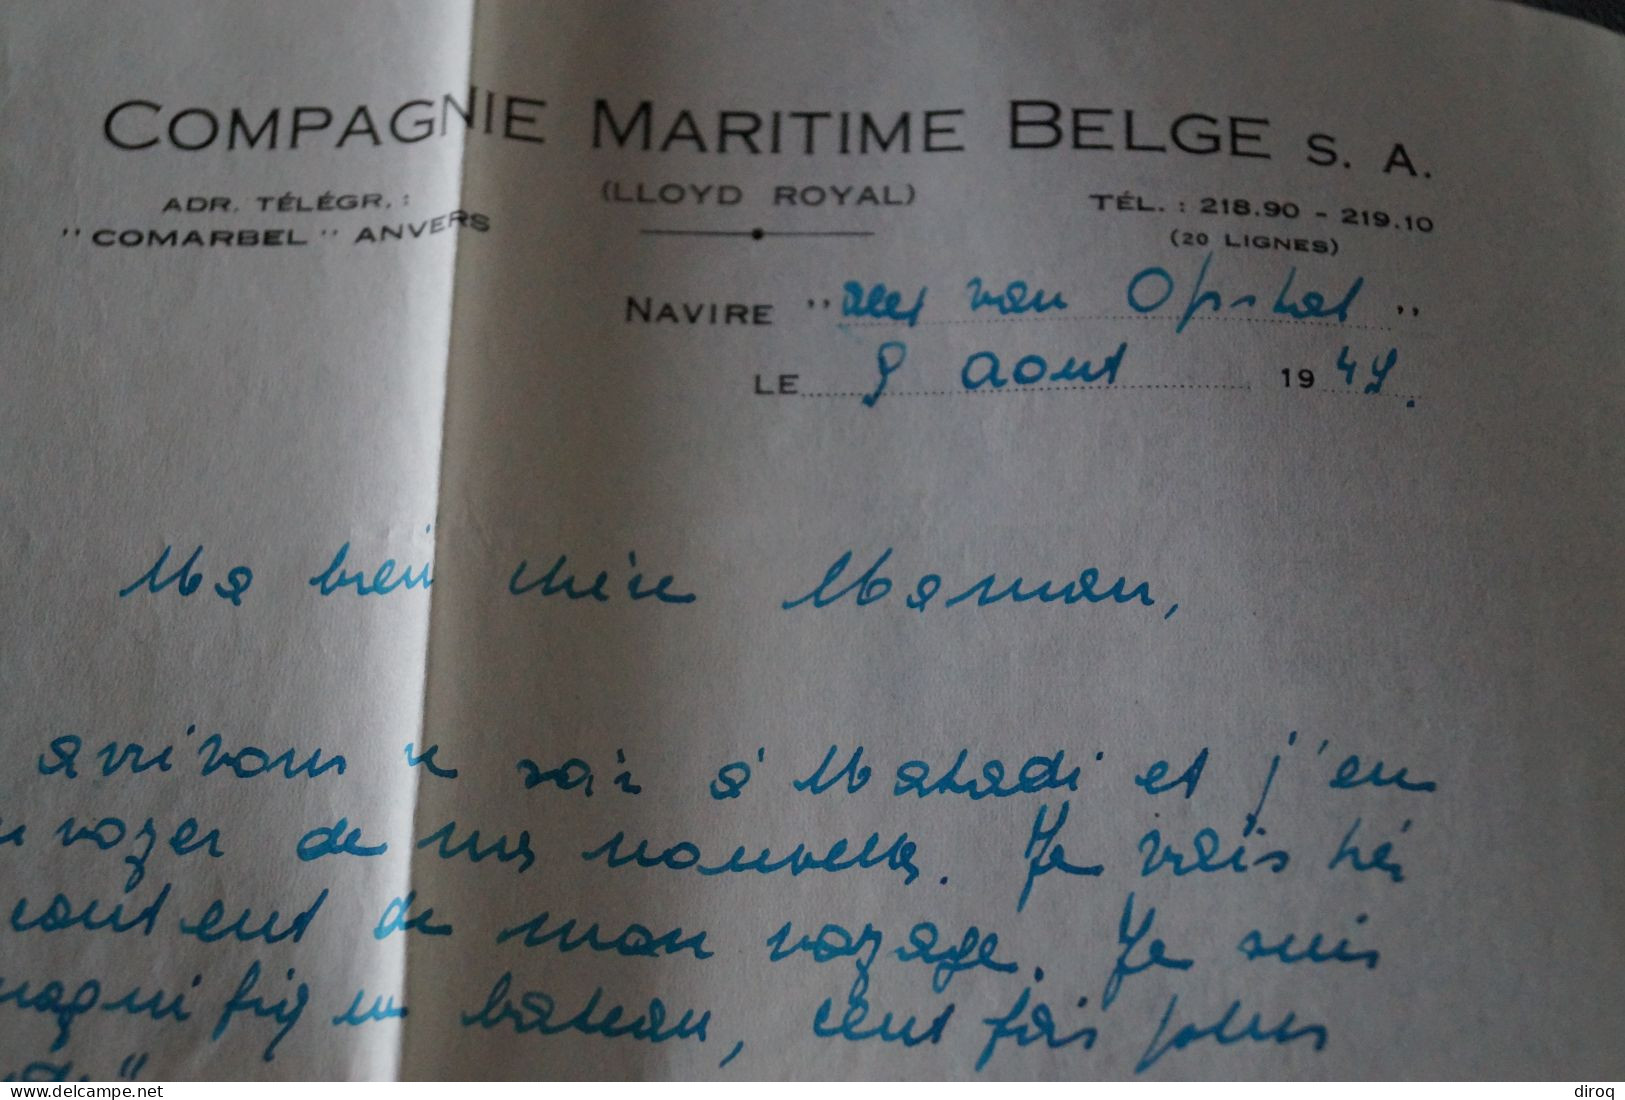 COMPAGNIE MARITIME BELGE S. A.
(LLOYD ROYAL)
ADR. TÉLÉGR. :
"COMARBEL" ANVERS
TÉL. : 218.90 - 219.10
(20 LIGNES)
NAVIRE " van Opstal "
LE 9 aout 1949.
Ma bien chère Maman,
arrivons ce soir à Matadi et j'en
de mes nouvelles. Je suis très
content de mon voyage. Je suis
magnifique bateau, cent fois plus
delcampe.net
diroq